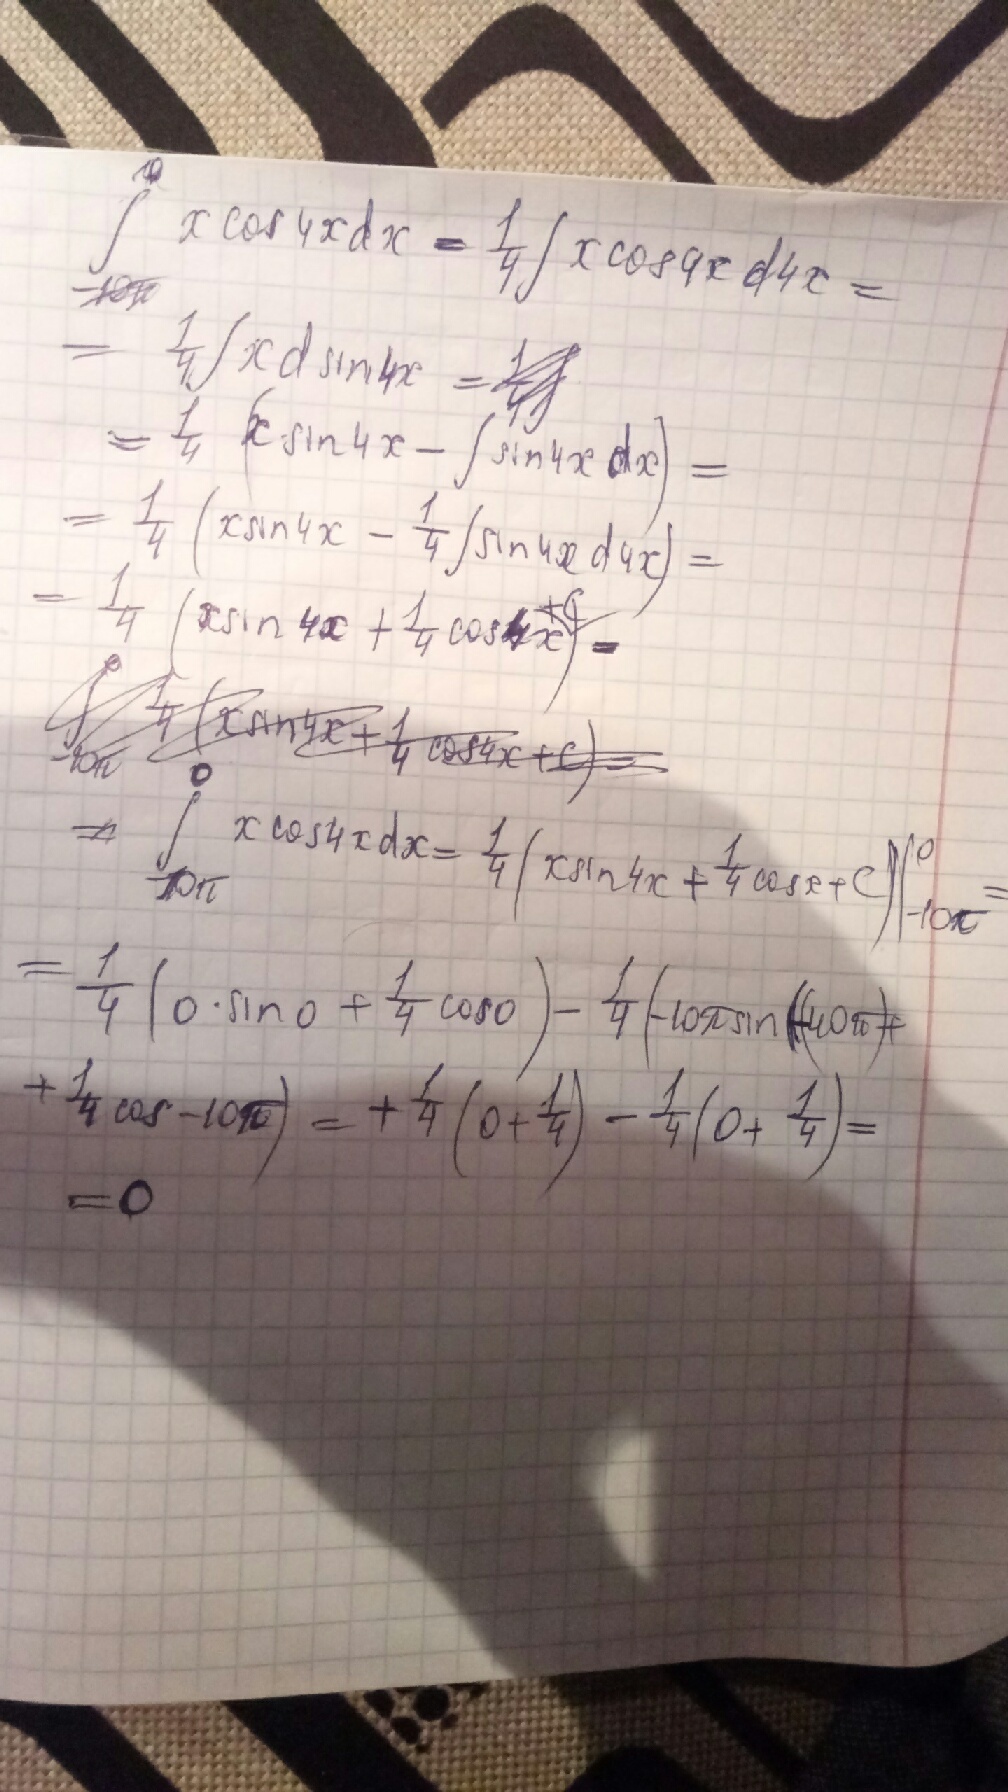 ∫ x cos 4x dx = 1/4 ∫ x cos 4x d4x =
= 1/4 ∫ x d sin 4x =
= 1/4 (x · sin 4x − ∫ sin 4x dx) =
= 1/4 (x sin 4x − 1/4 ∫ sin 4x d4x) =
= 1/4 (x sin 4x + 1/4 cos 4x + C) =
∫_{-10π}^{0} 1/4 (x sin 4x + 1/4 cos 4x + C) =
∫_{-10π}^{0} x cos 4x dx = 1/4 (x sin 4x + 1/4 cos x + C) |_{-10π}^{0} =
= 1/4 (0 · sin 0 + 1/4 cos 0) − 1/4 (−10π sin (40π) +
+ 1/4 cos −10π) = + 1/4 (0 + 1/4) − 1/4 (0 + 1/4) =
= 0